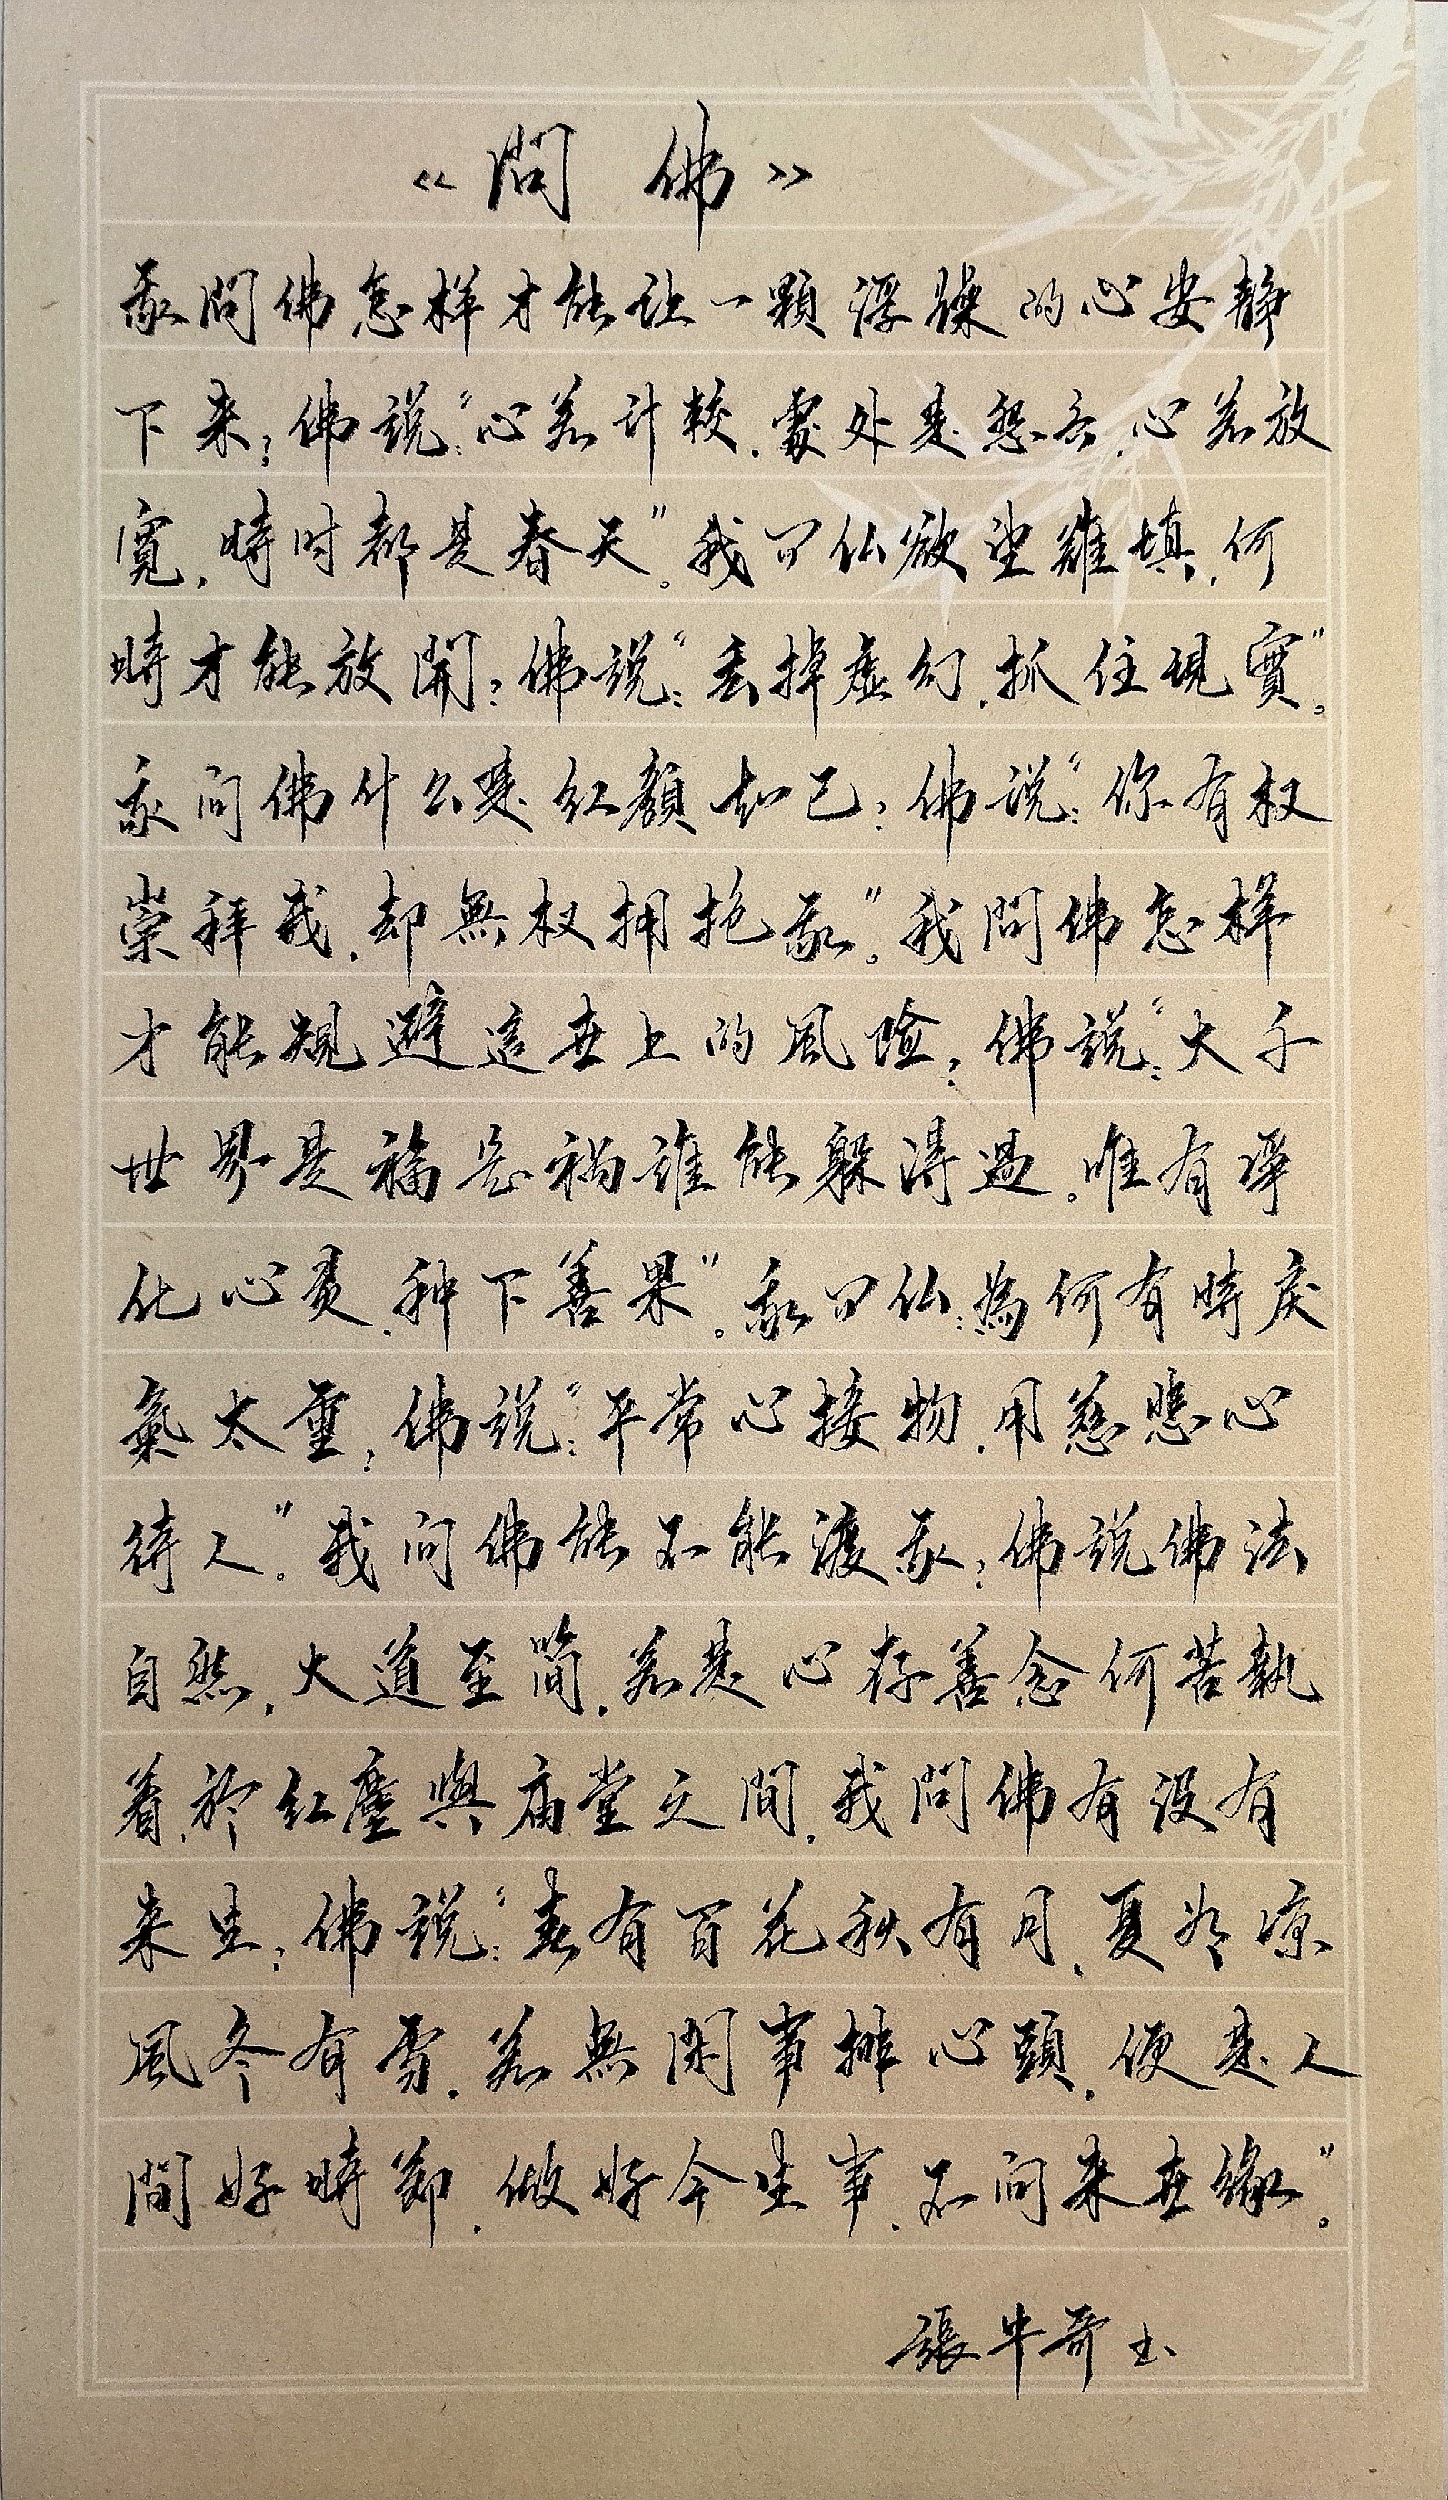 《問佛》
我問佛怎样才能让一顆浮躁的心安静
下来;佛説:“心若计較,處处是怨言,心若放
寬,時时都是春天”。我问仏欲望難填,何
時才能放開;佛説:“丢掉虚幻,抓住現實”。
我问佛什么是红顏知己;佛说:“你有权
崇拜我,却無权拥抱我”。我問佛怎样
才能规避這世上的風险;佛説:“大千
世界是福是祸谁能躲得過。唯有净
化心灵,种下善果”。我问仏:為何有時戾
氣太重;佛説:“平常心接物,用慈悲心
待人”。我问佛能不能渡我;佛説佛法
自然,大道至简,若是心存善念何苦執
着於红塵與庙堂之間,我問佛有没有
来生;佛説:“春有百花秋有月,夏有凉
風冬有雪,若無閑事掛心頭,便是人
間好時節,做好今生事,不问来世缘”。
張牛哥书